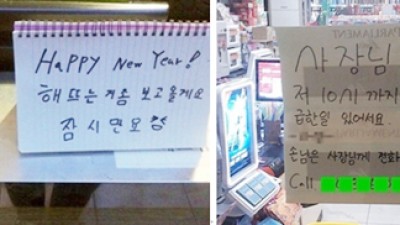 HAPPY New Year!
해 뜨는거좀 보고 올게요
잠시만요
PARLIAMENT
사장님
저 10시까지
급한일 있어서요
손님은 사장님께 전화
Call